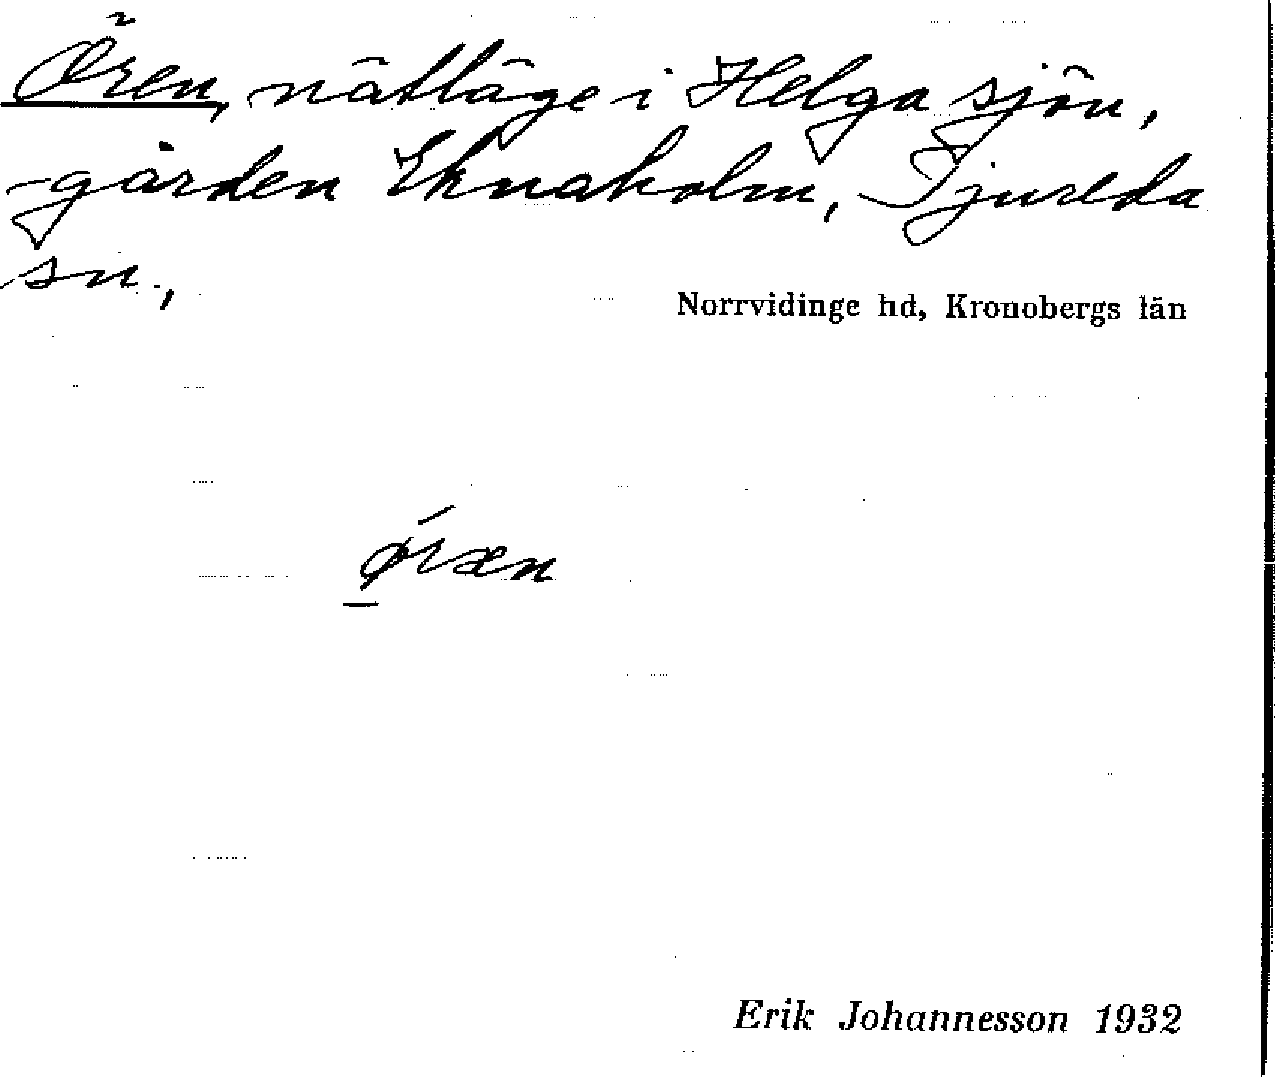 Ören, nätläge i Helgasjön,
gården Eknaholm, Tjureda
sn.,
Norrvidinge hd, Kronobergs län
øræn
Erik Johannesson 1932